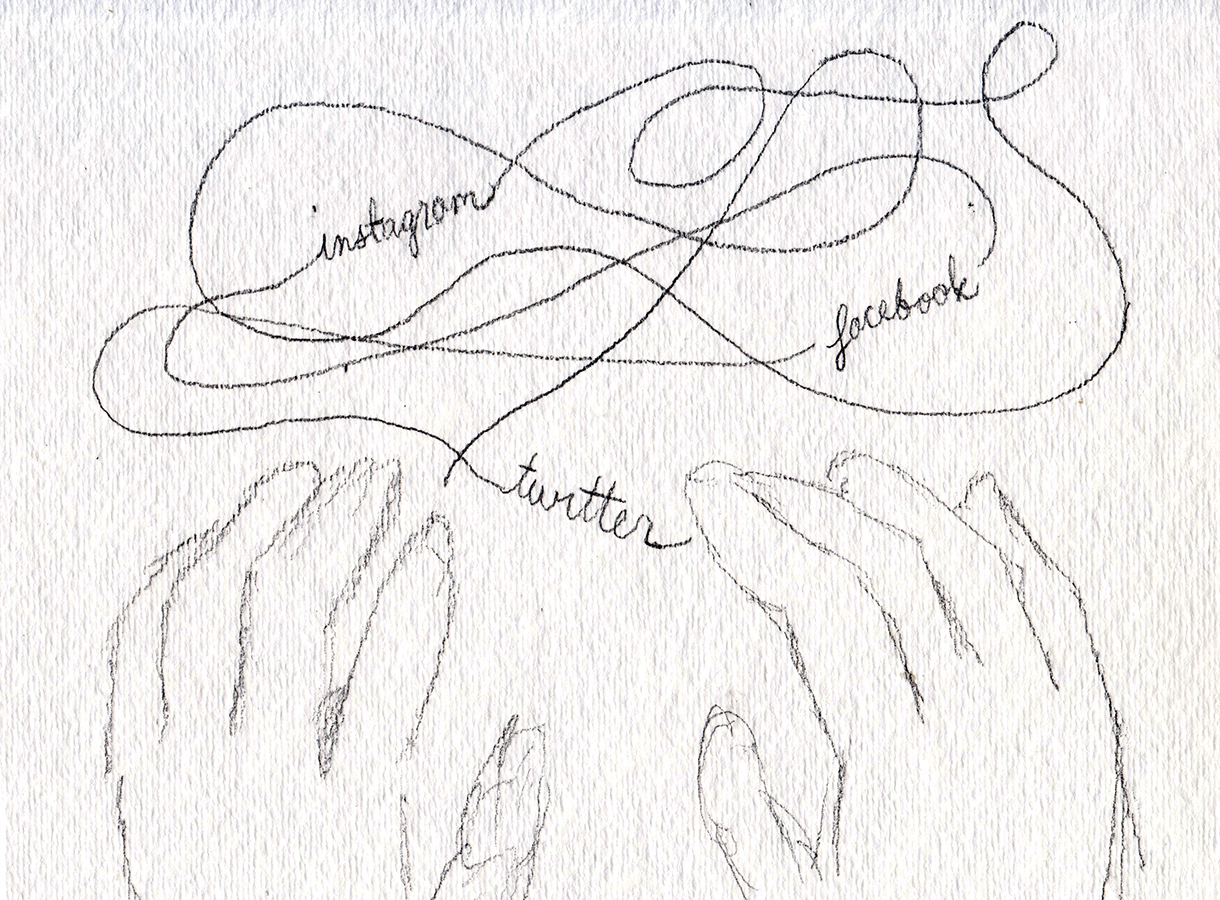 instagram
facebook
twitter